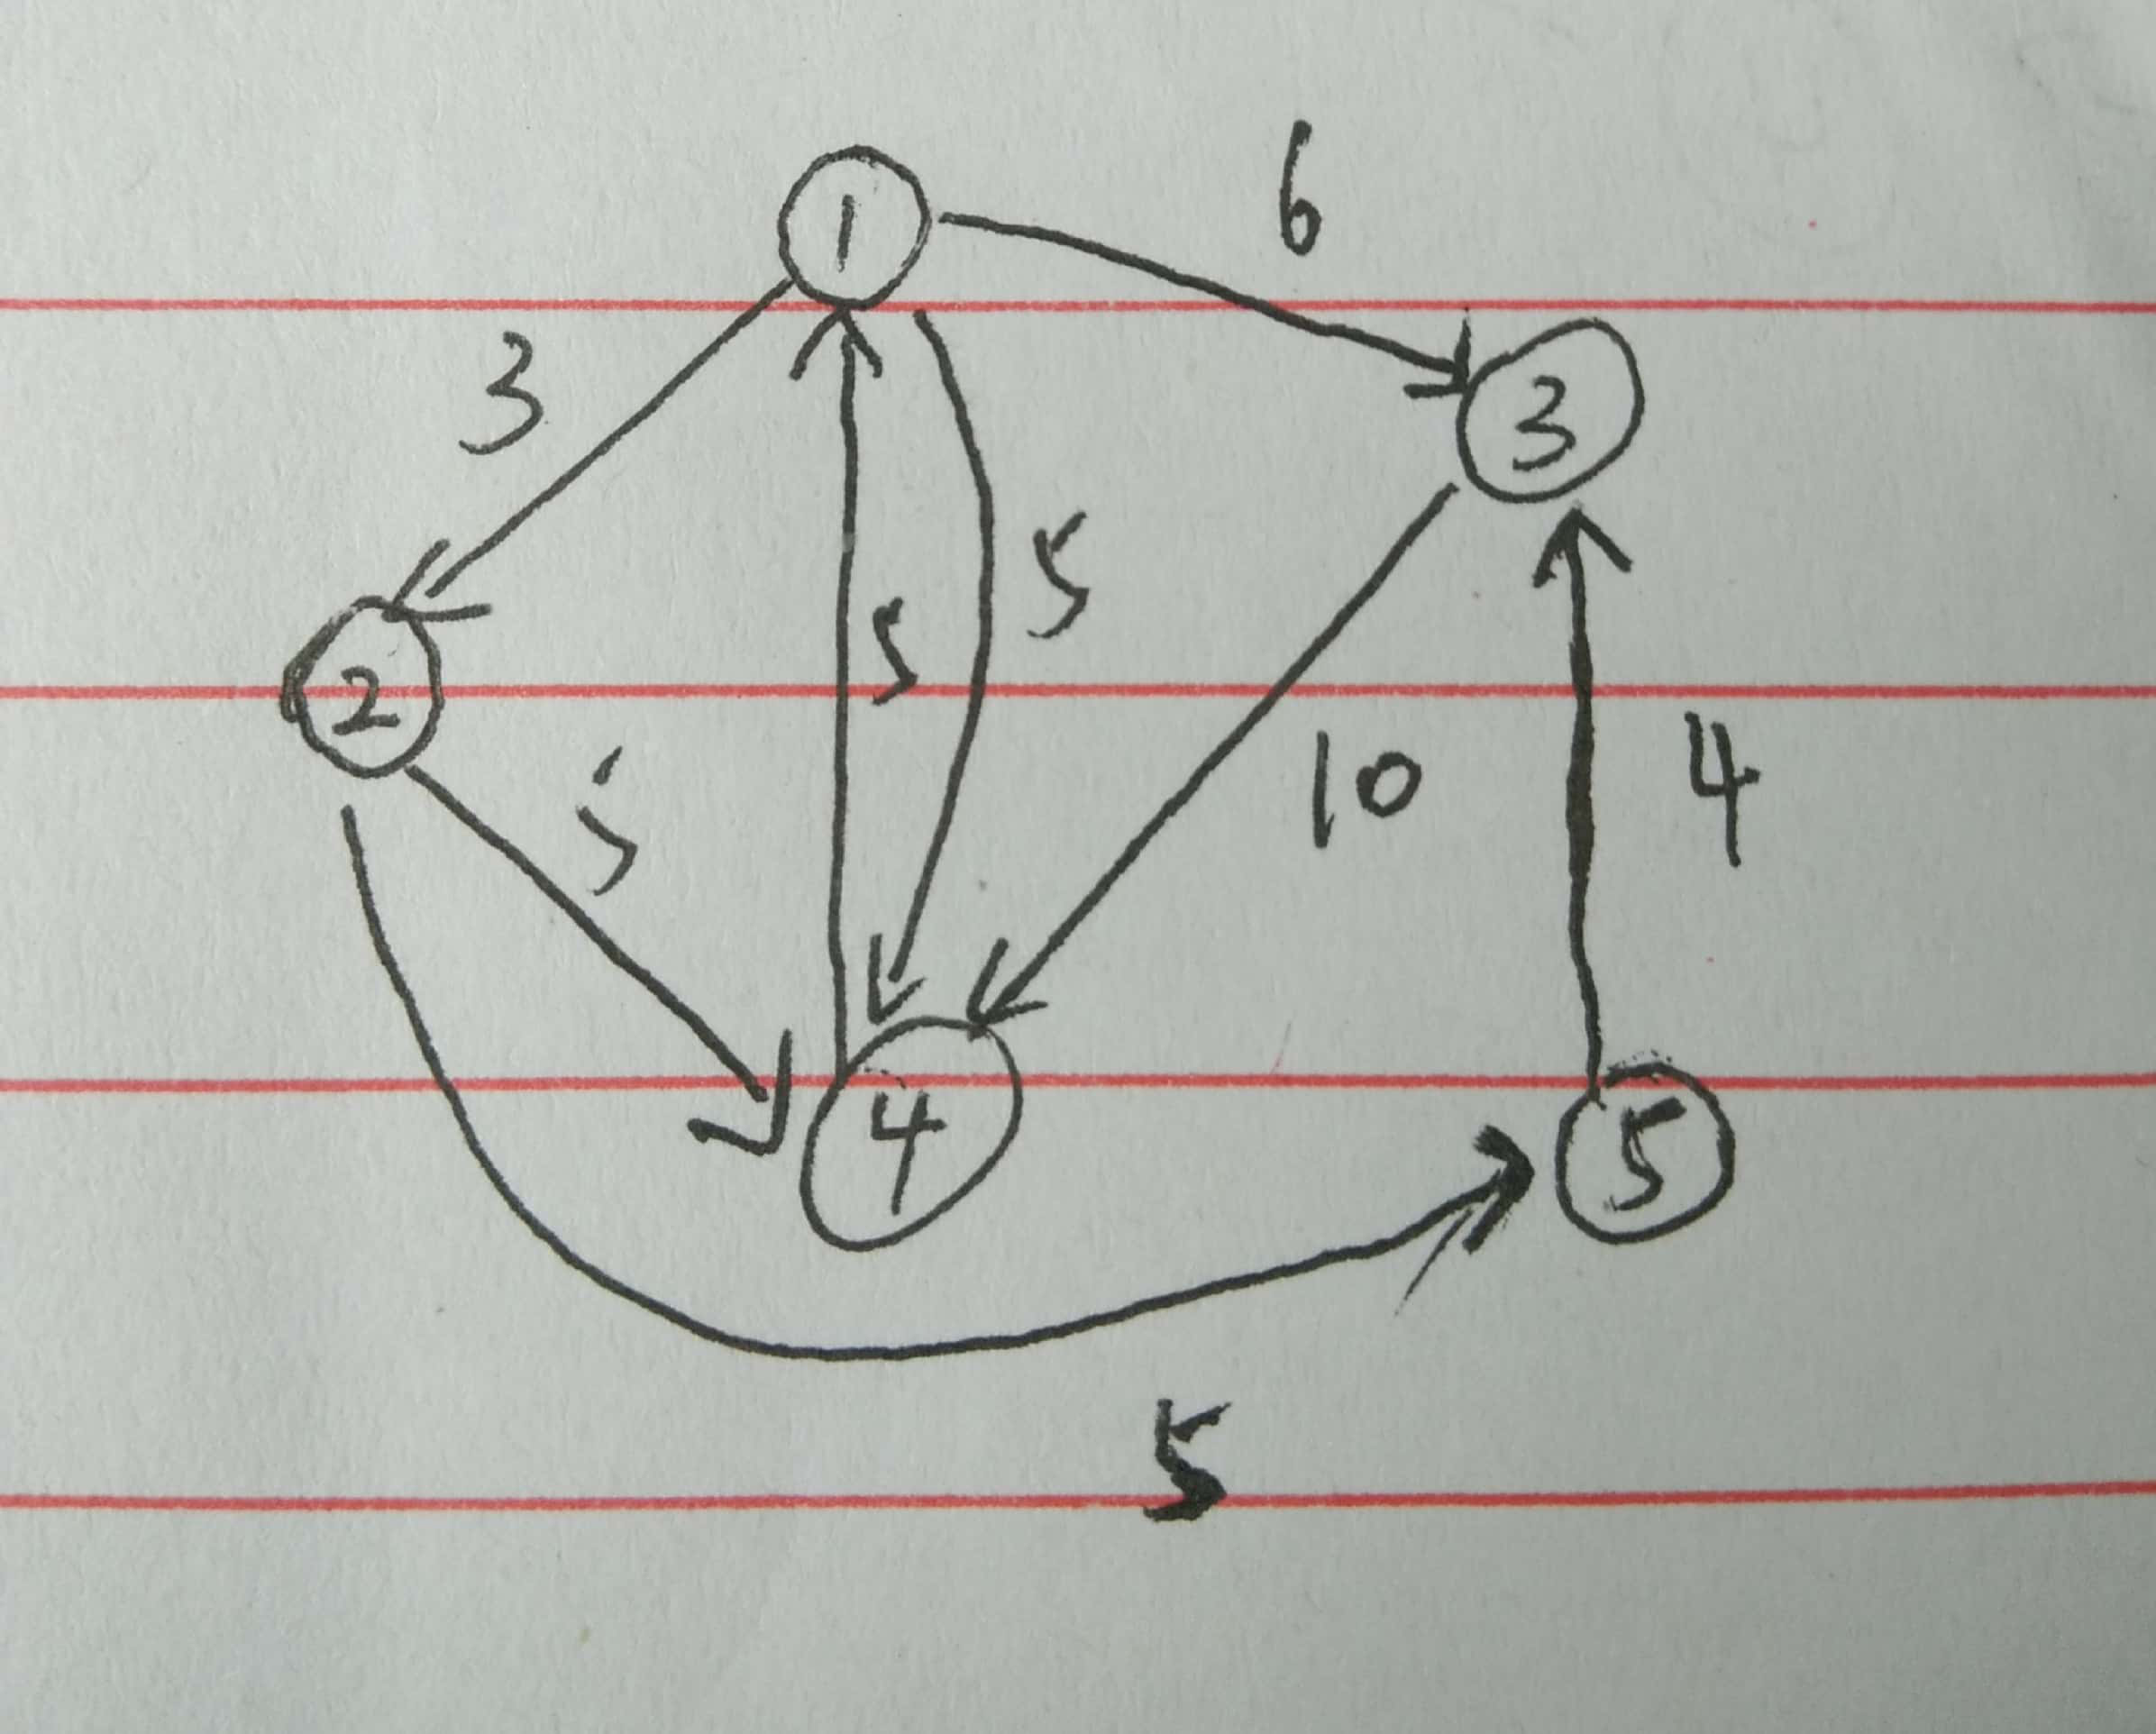 6
1
3
3
5
5
2
5
10
4
4
5
5